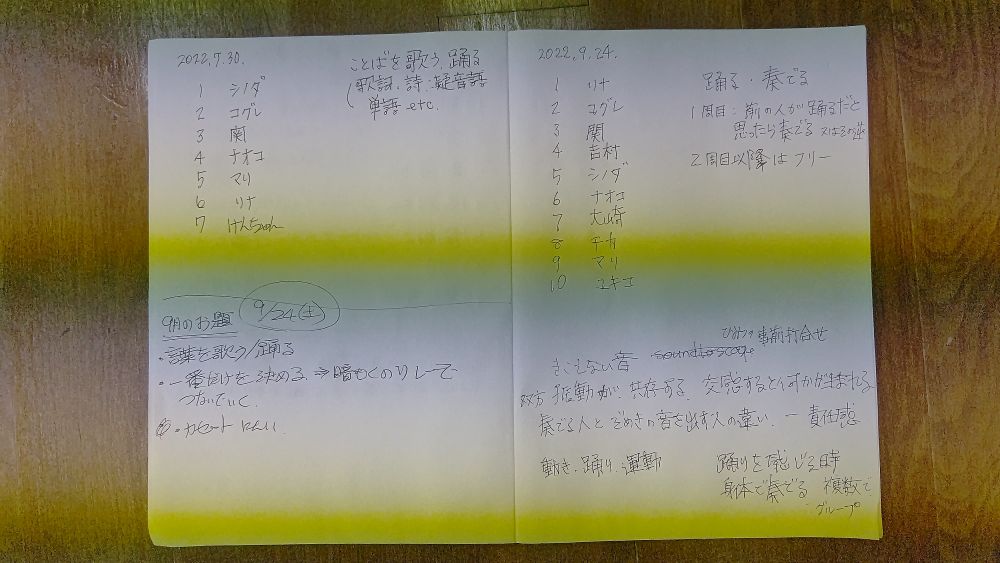 2022.7.30.
1 シノダ
2 コグレ
3 関
4 ナオコ
5 マリ
6 リナ
7 けんちゃん
ことばを歌う、踊る
(歌詞、詩、擬音語
単語 etc.
9月のお題 9/24(土)
・言葉を歌う/踊る
・一番だけを決める ⇒暗もくのリレーで
つないでいく。
・カセット
2022.9.24.
1 リナ
2 コグレ
3 関
4 吉村
5 シノダ
6 ナオコ
7 大山奇
8 チカ
9 マリ
10 ユキコ
踊る・奏でる
1周目:前の人が踊るだと
思ったら奏でる 又はその逆
2周目以降はフリー
ひみつの事前打合せ
きこえない音
双方 振動が、共存する、交感すると何かが生まれる
奏でる人とざわめきの音を出す人の違い、ー責任感
動き、踊り、運動
踊りを感じる時
身体で奏でる 複数で
グループ